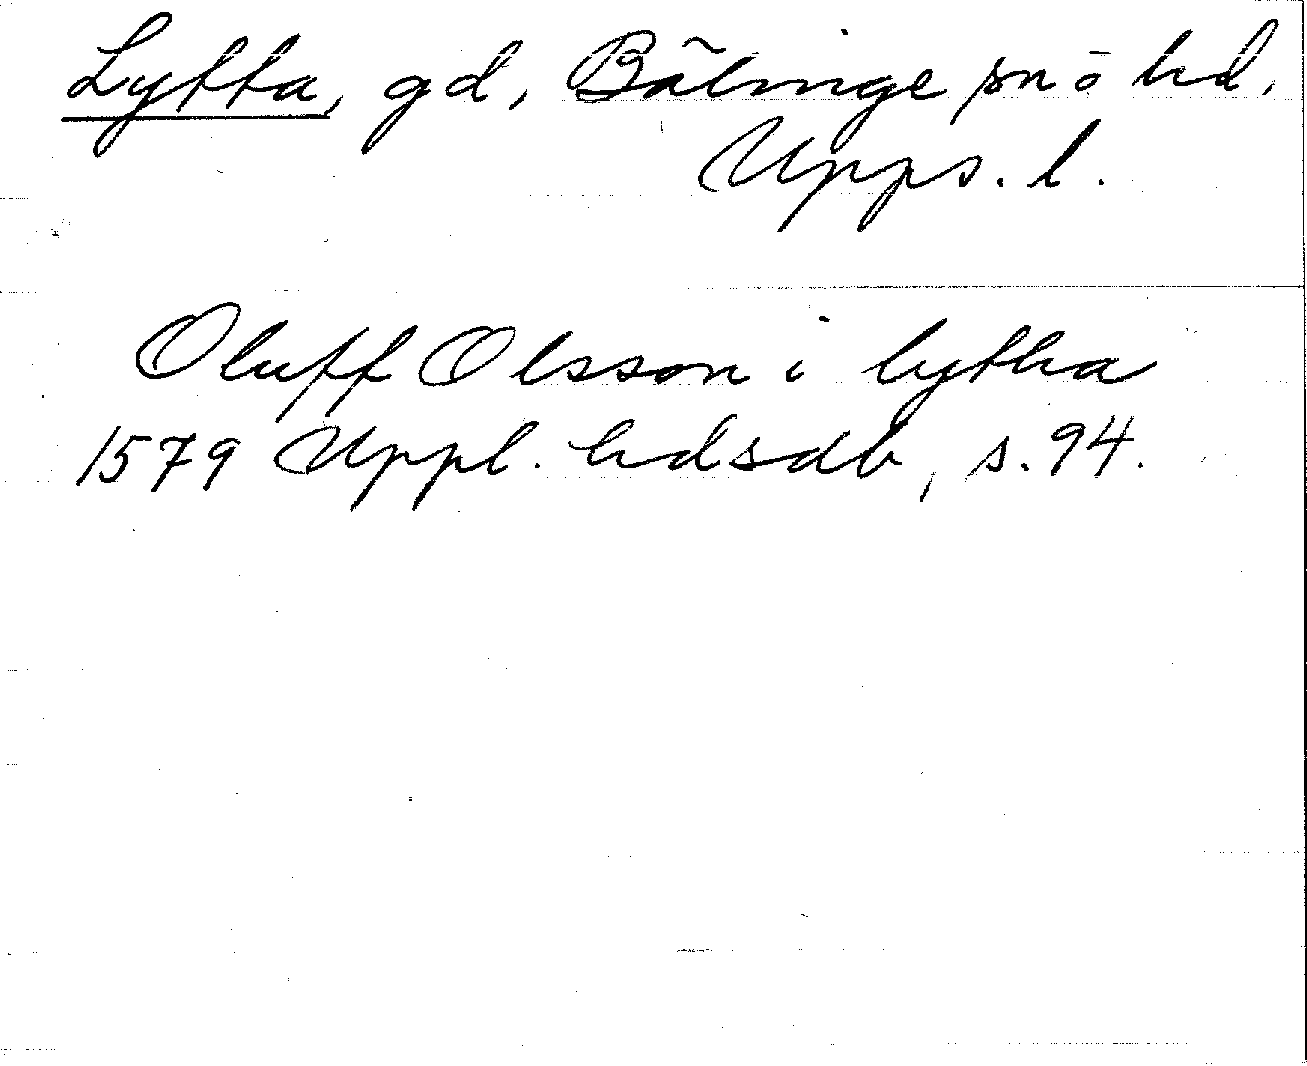 Lytta, gd, Bälinge sn o hd,
Upps. l.
Oluff Olsson i lytha
1579 Uppl. hdsdb, s. 94.